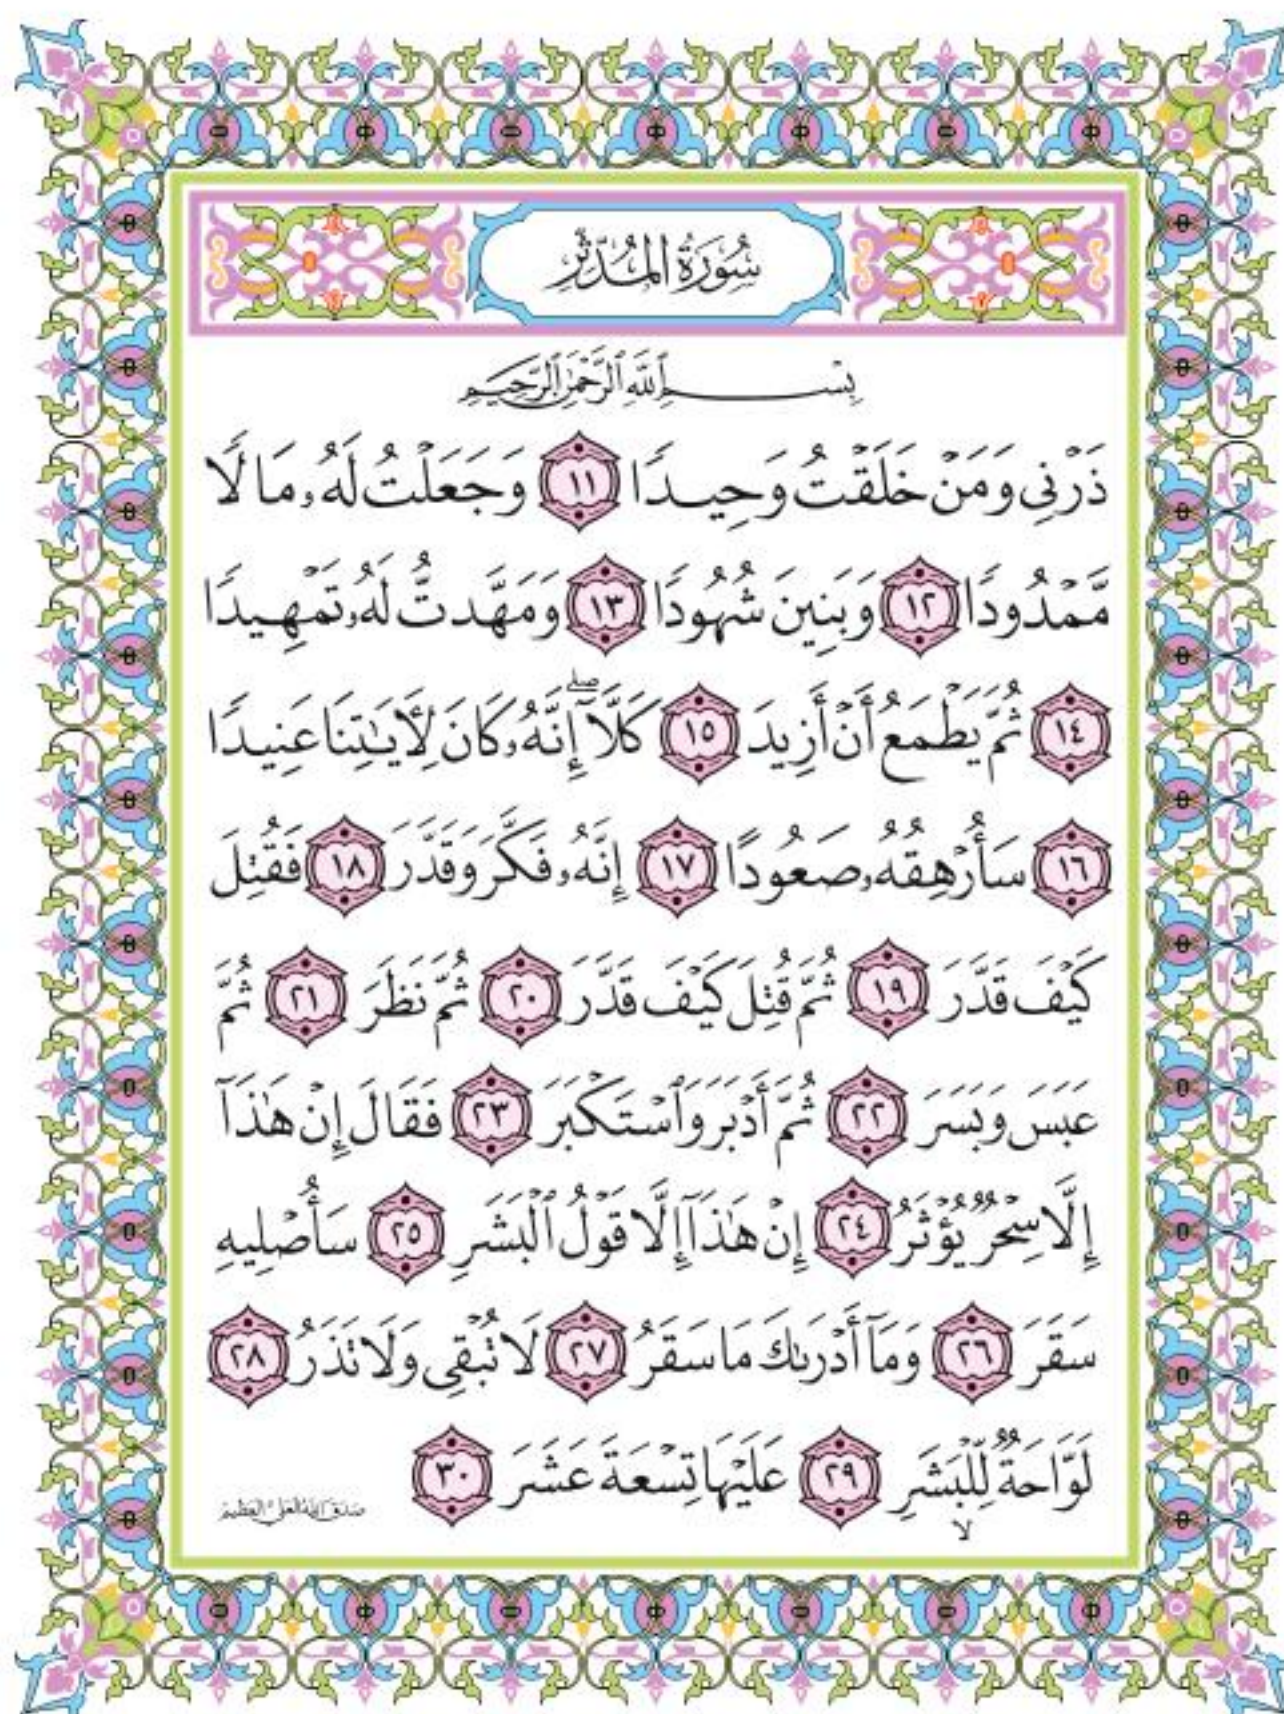 سُورَةُ المُدَّثِّرِ
بِسْمِ ٱللَّهِ ٱلرَّحْمَٰنِ ٱلرَّحِيمِ
ذَرْنِى وَمَنْ خَلَقْتُ وَحِيدًا ١١ وَجَعَلْتُ لَهُۥ مَالًا
مَّمْدُودًا ١٢ وَبَنِينَ شُهُودًا ١٣ وَمَهَّدتُّ لَهُۥ تَمْهِيدًا
١٤ ثُمَّ يَطْمَعُ أَنْ أَزِيدَ ١٥ كَلَّآ ۖ إِنَّهُۥ كَانَ لِأَيَٰتِنَا عَنِيدًا
١٦ سَأُرْهِقُهُۥ صَعُودًا ١٧ إِنَّهُۥ فَكَّرَ وَقَدَّرَ ١٨ فَقُتِلَ
كَيْفَ قَدَّرَ ١٩ ثُمَّ قُتِلَ كَيْفَ قَدَّرَ ٢٠ ثُمَّ نَظَرَ ٢١ ثُمَّ
عَبَسَ وَبَسَرَ ٢٢ ثُمَّ أَدْبَرَ وَٱسْتَكْبَرَ ٢٣ فَقَالَ إِنْ هَٰذَآ
إِلَّا سِحْرٌ يُؤْثَرُ ٢٤ إِنْ هَٰذَآ إِلَّا قَوْلُ ٱلْبَشَرِ ٢٥ سَأُصْلِيهِ
سَقَرَ ٢٦ وَمَآ أَدْرَىٰكَ مَا سَقَرُ ٢٧ لَا تُبْقِى وَلَا تَذَرُ ٢٨
لَوَّاحَةٌ لِّلْبَشَرِ ٢٩ عَلَيْهَا تِسْعَةَ عَشَرَ ٣٠
لا
صدق الله العلي العظيم